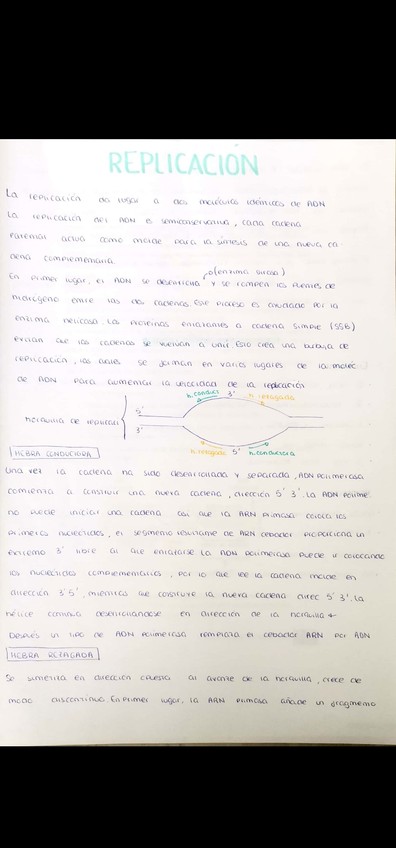 REPLICACION
La replicación da lugar a dos moléculas idénticas de ADN
La replicación del ADN es semiconservativa, cada cadena
parental actúa como molde para la síntesis de una nueva ca-
dena complementaria.
(enzima girasa)
En primer lugar, el ADN se desenrolla y se rompen los puentes de
hidrógeno entre las dos cadenas. Este proceso es ayudado por la
enzima helicasa. Las proteínas enlazantes a cadena simple (SSB)
evitan que las cadenas se vuelvan a unir. Esto crea una burbuja de
replicación, las cuales se forman en varios lugales de la moléc
de ADN para aumentar la velocidad de la replicación
h. conduc 3' h. retagada
5'
horquilla de replicaci
3'
h. retagada 5' h. conductora
HEBRA CONDUCTORA
Una vez la cadena ha sido desenrollada y separada, ADN polimerasa
comienza a construir una nueva cadena, dirección 5' 3'. La ADN polime.
no puede iniciar una cadena así que la ARN primasa coloca los
primeros nucleótidos, el segmento resultante de ARN cebador proporciona un
extremo 3' libre al que engancharse. La ADN polimerasa puede ir colocando
los nucleótidos complementarios, por lo que lee la cadena molde en
dirección 3' 5', mientras que construye la nueva cadena direc 5' 3'. La
hélice continua desenrollandose en dirección de la horquilla
Después un tipo de ADN polimerasa remplaza el cebador ARN por ADN
HEBRA REZAGADA
Se sintetiza en dirección opuesta al avance de la horquilla, crece de
modo discontinuo. En primer lugar, la ARN primasa añade un fragmento